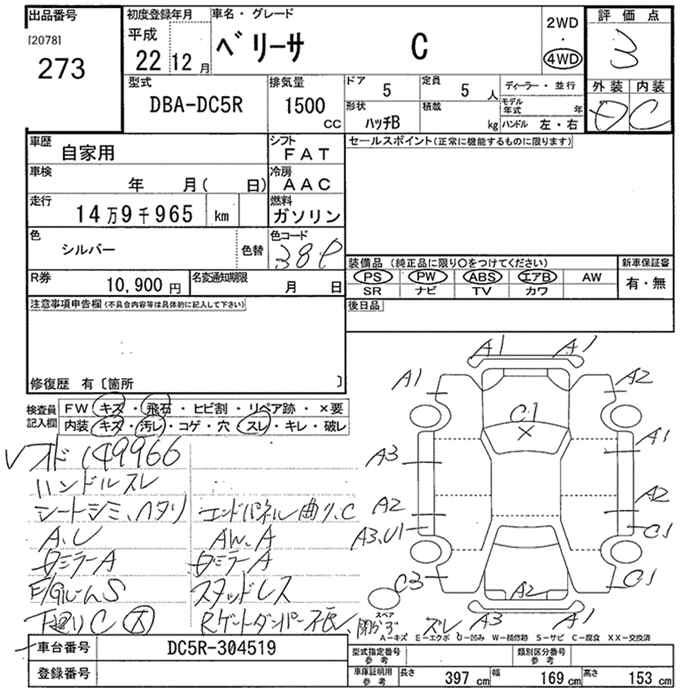 出品番号
[2078]
273
初度登録年月
平成
22 12月
車名・グレード
ベリーサ C
2WD
・
4WD
評価点
3
外装 内装
D C
型式
DBA-DC5R
排気量
1500
CC
ドア 5
定員 5 人
形状 ハッチB
積載 kg
ディーラー・並行
モデル年式 年
ハンドル 左・右
車歴
自家用
シフト
FAT
車検
年 月( 日)
冷房
AAC
走行
14万9千965 km
燃料
ガソリン
色
シルバー
色替
色コード
38P
R券
10,900円
名変通知期限
月 日
セールスポイント(正常に機能するものに限ります)
装備品(純正品に限り○をつけてください)
PS PW ABS エアB AW
SR ナビ TV カワ
新車保証書
有・無
後日品
注意事項申告欄(不具合内容等は具体的に記入して下さい)
修復歴 有〔箇所 〕
検査員
記入欄
FW キズ・飛石・ヒビ割・リペア跡・×要
内装 キズ・汚レ・コゲ・穴・スレ・キレ・破レ
オド 149966
ハンドルスレ
シートシミ、ヘタリ エンドパネル曲り、C
A.U AW.A
ミラーA ミラーA
F/GルームS スタッドレス
下廻りC 大 Rゲートダンパー不良
A1 A1
A1 A2
C1
A3 A1
A2 A2
A3,U1 C1
C3 C1
A2
A3 A1
スペア
ズレ
A−キズ E−エクボ U−凹み W−補修跡 S−サビ C−腐食 XX−交換済
車台番号
DC5R-304519
登録番号
型式指定番号
参考
類別区分番号
参考
車庫証明用
参考
長さ 397 cm 幅 169 cm 高さ 153 cm